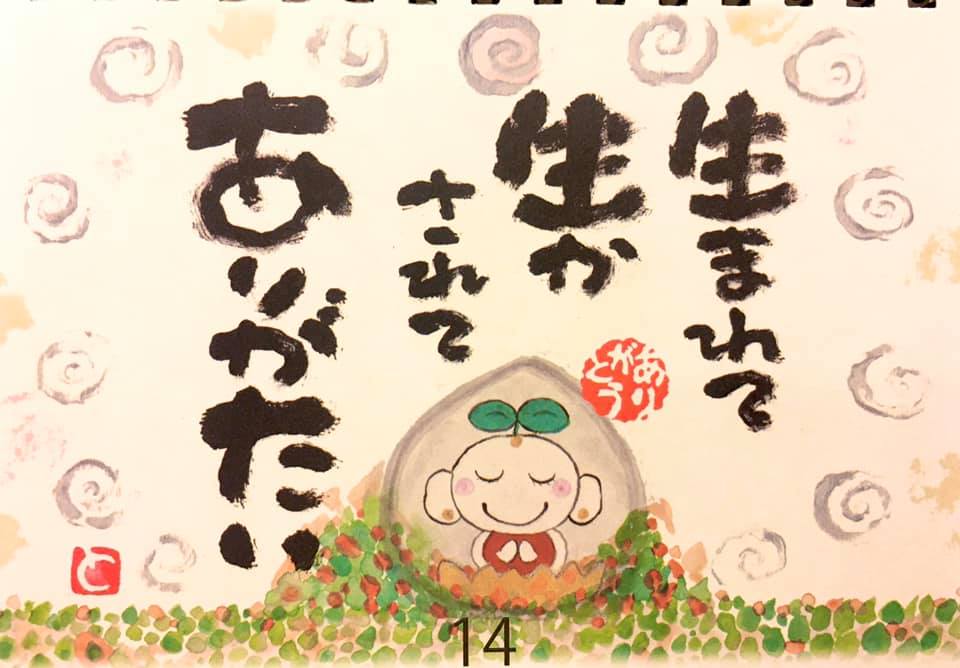 生まれて
生か
されて
ありがたい
ありがとう
と
14